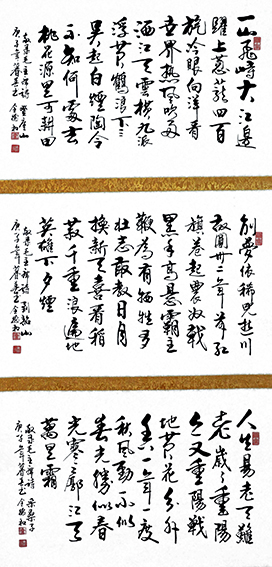 一山飛峙大江邊
躍上葱蘢四百
旋冷眼向洋看
世界熱風吹雨
洒江天雲横九派
浮黄鶴浪下三
吴起白烟陶令
不知何處去
桃花源里可耕田
敬录毛主席诗登庐山
庚子年暮春
别夢依稀咒逝川
故園卅二年前紅
旗卷起農奴戟
黑手高懸霸主
鞭為有犧牲多
壮志敢教日月
换新天喜看稻
菽千重浪遍地
英雄下夕烟
敬录毛主席诗到韶山
庚子年暮春
人生易老天難
老歲歲重陽
今又重陽戰
地黄花分外
香一年一度
秋風勁不似
春光勝似春
光寥廓江天
萬里霜
敬录毛主席词采桑子
庚子年暮春